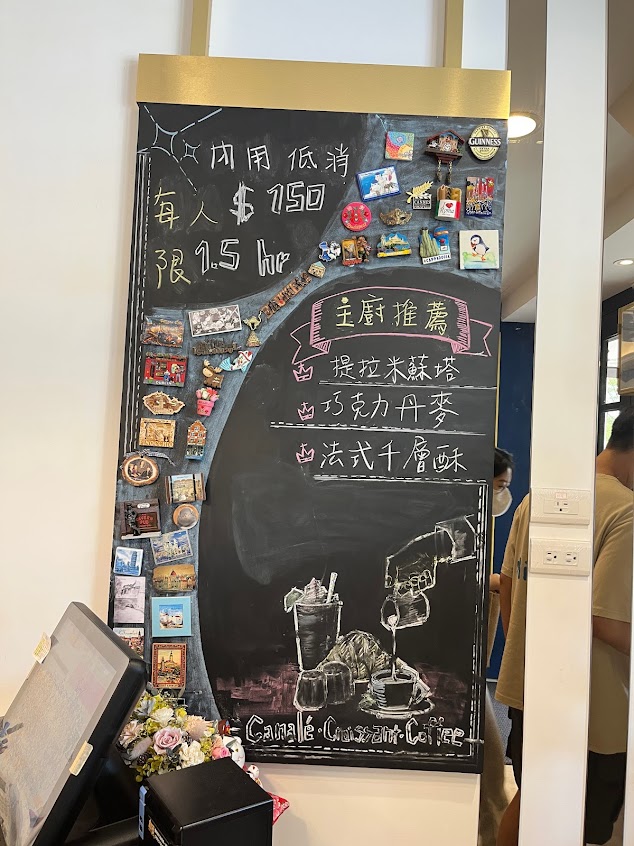 內用 低消
每人 $150
限 1.5 hr
GUINNESS
主廚推薦
提拉米蘇塔
巧克力丹麥
法式千層酥
Canalé · Croissant · Coffee